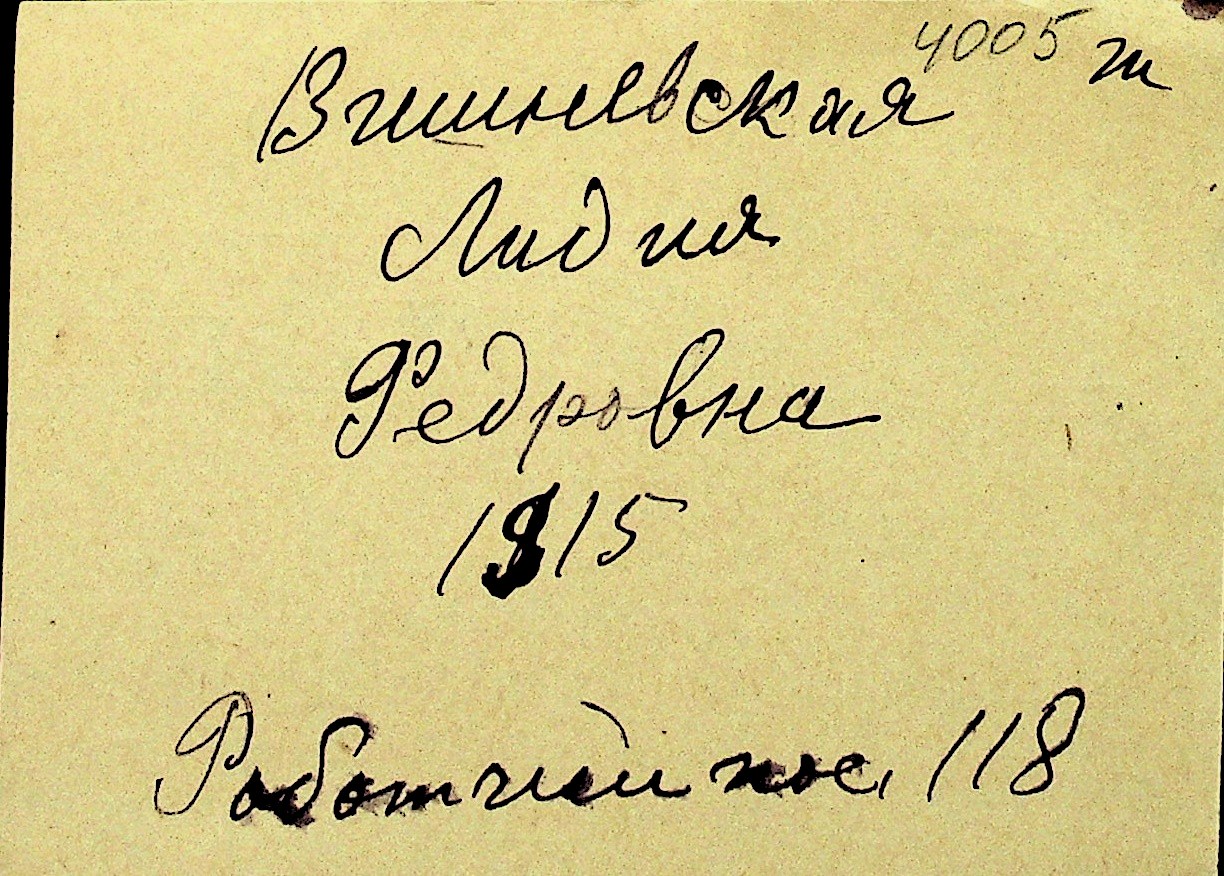 4005 ж
Вишневская
Лидия
Федровна
1915
Работчий пос. 118